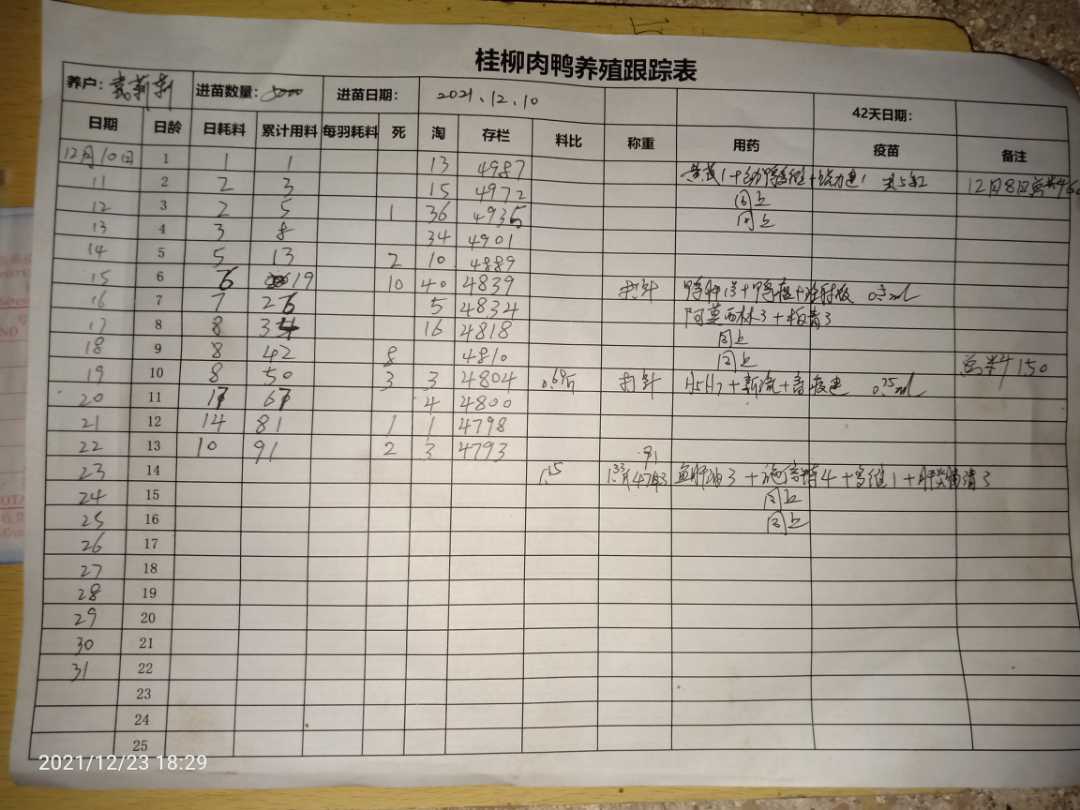 桂柳肉鸭养殖跟踪表
养户: 进苗数量: 5000 进苗日期: 2021.12.10 42天日期:
日期 日龄 日耗料 累计用料 每羽耗料 死 淘 存栏 料比 称重 用药 疫苗 备注
12月10日 1 1 1 13 4987
11 2 2 3 15 4972 同上 12月8日
12 3 2 5 1 36 4935 同上
13 4 3 8 34 4901
14 5 5 13 2 10 4889
15 6 6 19 10 40 4839 打针
16 7 7 26 5 4834 阿莫西林3+板青3
17 8 8 34 16 4818 同上
18 9 8 42 8 4810 同上
19 10 8 50 3 3 4804 打针 150
20 11 17 67 4 4800
21 12 14 81 1 1 4798
22 13 10 91 2 3 4793
23 14 鱼肝油3+
24 15 同上
25 16 同上
26 17
27 18
28 19
29 20
30 21
31 22
23
24
25
2021/12/23 18:29